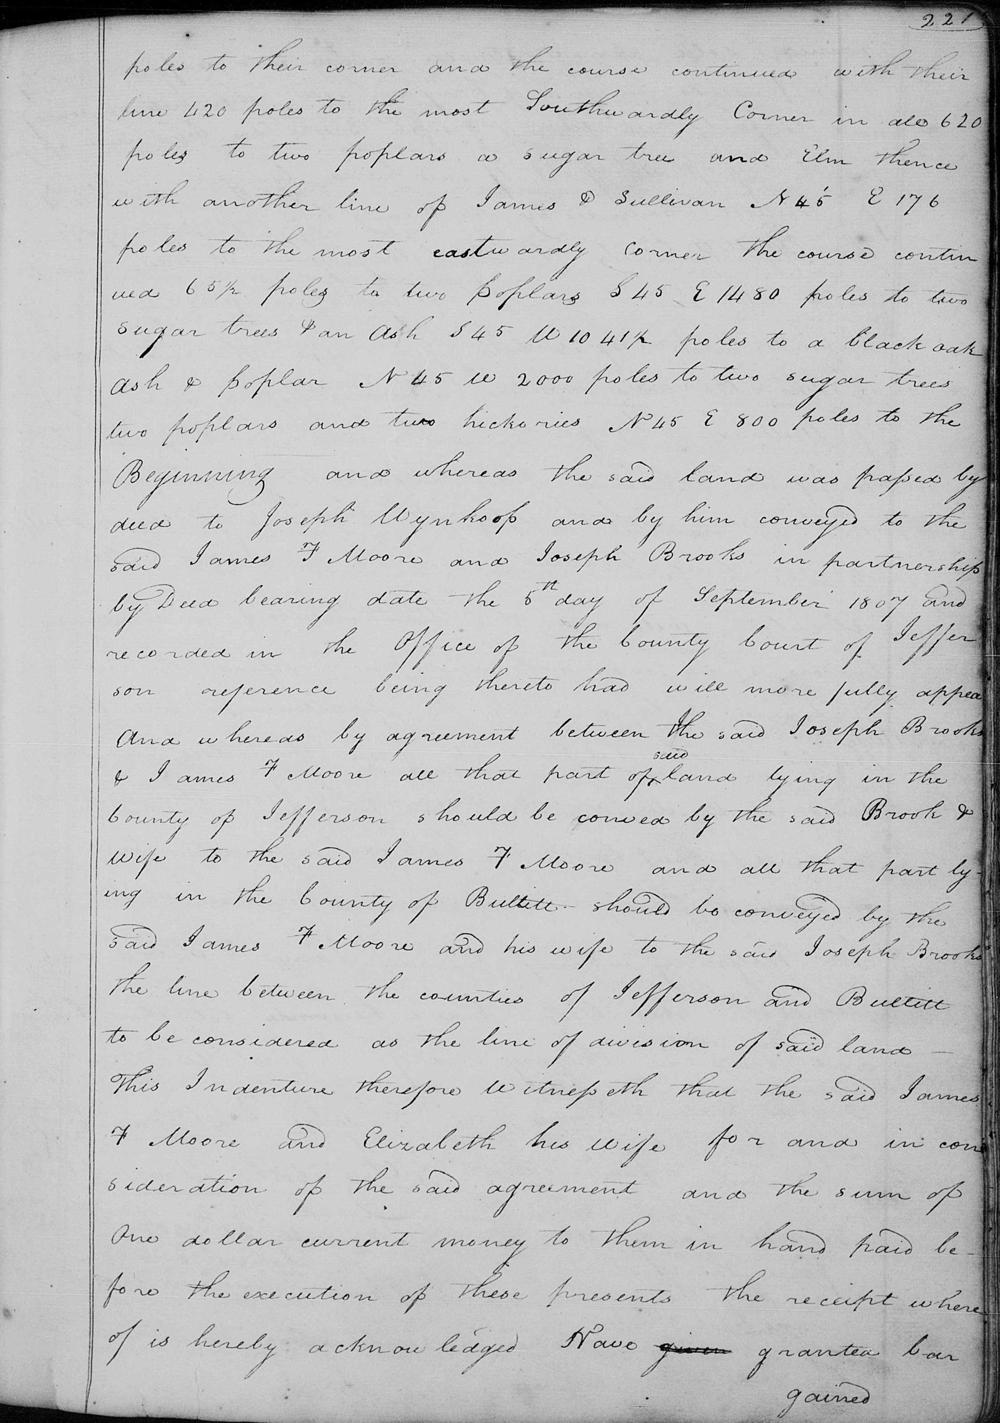 221
poles to their corner and the course continued with their
line 420 poles to the most Southwardly Corner in all 620
poles to two poplars a sugar tree and Elm thence
with another line of James & Sullivan N 45 E 176
poles to the most eastwardly corner the course contin
ued 65½ poles to two poplars S 45 E 1480 poles to two
sugar trees & an Ash S 45 W 1041½ poles to a black oak
Ash & poplar N 45 W 2000 poles to two sugar trees
two poplars and two hickories N 45 E 800 poles to the
Beginning and whereas the said land was passed by
deed to Joseph Wynkoop and by him conveyed to the
said James F Moore and Joseph Brooks in partnership
by Deed bearing date the 5th day of September 1807 and
recorded in the Office of the County Court of Jeffer
son reference being thereto had will more fully appea
And whereas by agreement between the said Joseph Brooks
& James F Moore all that part of said land lying in the
County of Jefferson should be conved by the said Brook &
Wife to the said James F Moore and all that part ly-
ing in the County of Bullitt should be conveyed by the
said James F Moore and his wife to the said Joseph Brooks
the line between the counties of Jefferson and Bullitt
to be considered as the line of division of said land —
This Indenture therefore Witnesseth that the said James
F Moore and Elizabeth his Wife for and in con
sideration of the said agreement and the sum of
One dollar current money to them in hand paid be-
fore the execution of these presents the receipt where
of is hereby acknowledged Have given granted bar
gained